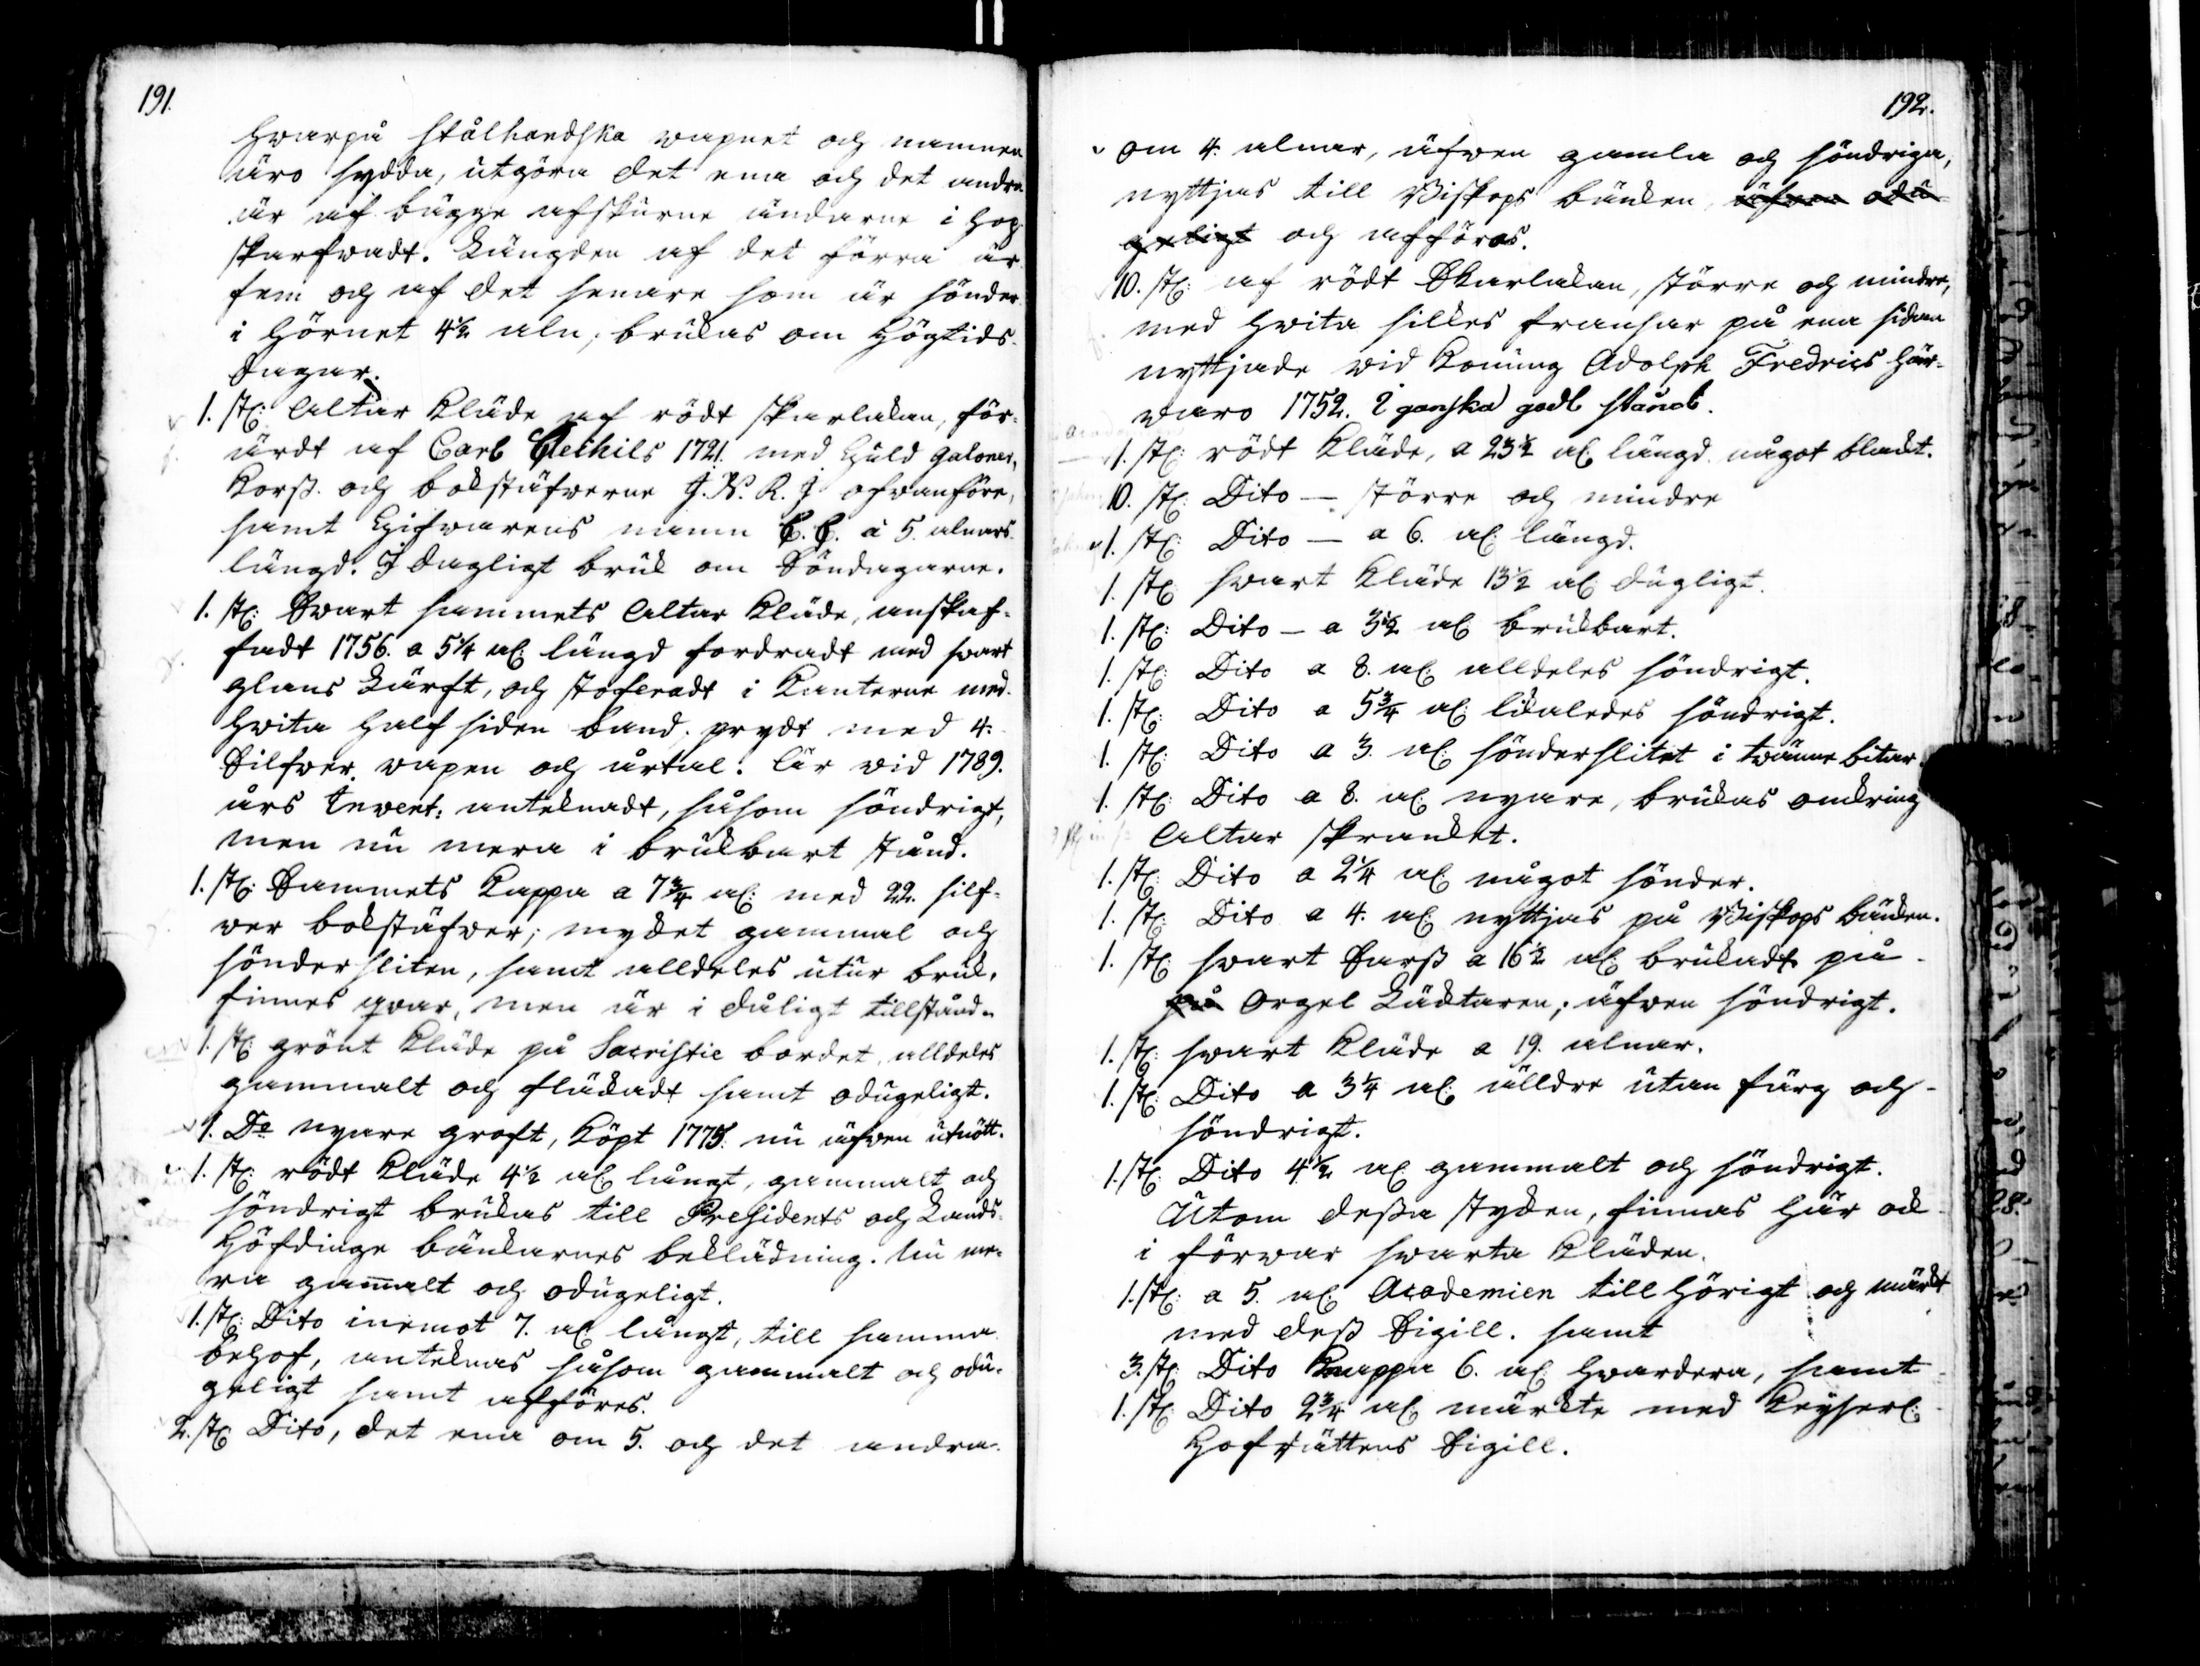 191.
hwarpå stålhandska wapnet och namnen
äro sydda, utgöra det ena och det andra
är af bägge afskurne ändarne i hop
skarfvadt. Längden af det förra är
fem och af det senare som är sönder
i hörnet 4½ aln, brukas om Högtids-
dagar.
1. st: Altar Kläde af rödt skarlakan, för-
ärdt af Carl 1721. med Guld galoner,
Korss och bokstäfwerne J. N. R. J ofwanföre,
samt Gifwarens namn C. C. à 5. alnars
längd. I dagligt bruk om Söndagarne.
1. st: Swart sammets Altar Kläde, anskaf-
fadt 1756. a 5¼ al: längd fordradt med swart
glans Lärft, och stoferadt i Kanterne med
hwita half siden band. prydt med 4.
Silfwer wapen och årtal. Är wid 1789.
års Invent: anteknadt, såsom söndrigt,
men nu mera i brukbart stånd.
1. st: Sammets Kappa a 7¾ al: med 22. silf-
wer bokstäfwer; mycket gammal och
sönder sliten, samt alldeles utur bruk.
finnes qwar, men är i dåligt tillstånd.
1. st: grönt Kläde på Sacristie bordet, alldeles
gammalt och fläckadt samt odugeligt.
1. Do nyare groft, köpt 1775. nu äfwen utnött.
1. st: rödt Kläde 4½ al: långt, gammalt och
söndrigt brukas till Presidents och Lands-
Höfdinge bänkarnes beklädning. Nu me-
ra gamalt och odugeligt.
1. st: Dito inemot 7. al: långt, till samma
behof, anteknas såsom gammalt och odu-
geligt samt afföres.
2. st: Dito, det ena om 5. och det andra
192.
om 4. alnar, äfwen gamla och söndriga,
nyttjas till Biskops bänken, äfwen odu-
geligt och afföras.
10. st: af rödt Skarlakan, större och mindre,
med hwita silkes fransar på ena sidan
nyttjade wid Konung Adolph Fredrics här-
waro 1752. I ganska godt stånd.
1. st: rödt Kläde, a 23½ al: längd. något blekt.
10. st: Dito — större och mindre
1. st: Dito — a 6. al: längd.
1. st: swart Kläde 13½ al: dugligt.
1. st: Dito — a 3½ al: brukbart.
1. st: Dito a 8. al: alldeles söndrigt.
1. st: Dito a 5¾ al: likaledes söndrigt.
1. st: Dito a 3. al: sönderslitet i twänne bitar.
1. st: Dito a 8. al: nyare, brukas omkring
Altar skranket.
1. st: Dito a 2¼ al: något sönder.
1. st: Dito a 4. al: nyttjas på Biskops bänken.
1. st: swart Sarss a 16½ al: brukadt på
på Orgel Läktaren; äfwen söndrigt.
1. st: swart Kläde a 19. alnar.
1. st: Dito a 3¼ al: älldre utan färg och
söndrigt.
1. st: Dito 4½ al: gammalt och söndrigt.
Utom dessa stycken, finnas här ock
i förwar swarta Kläden.
1. st: a 5. al: Academien till hörigt och märkt
med dess Sigill. samt
3. st: Dito knappa 6. al: hwardera, samt
1. st: Dito 2¾ al: märkte med Keyserl:
Hofrättens Sigill.